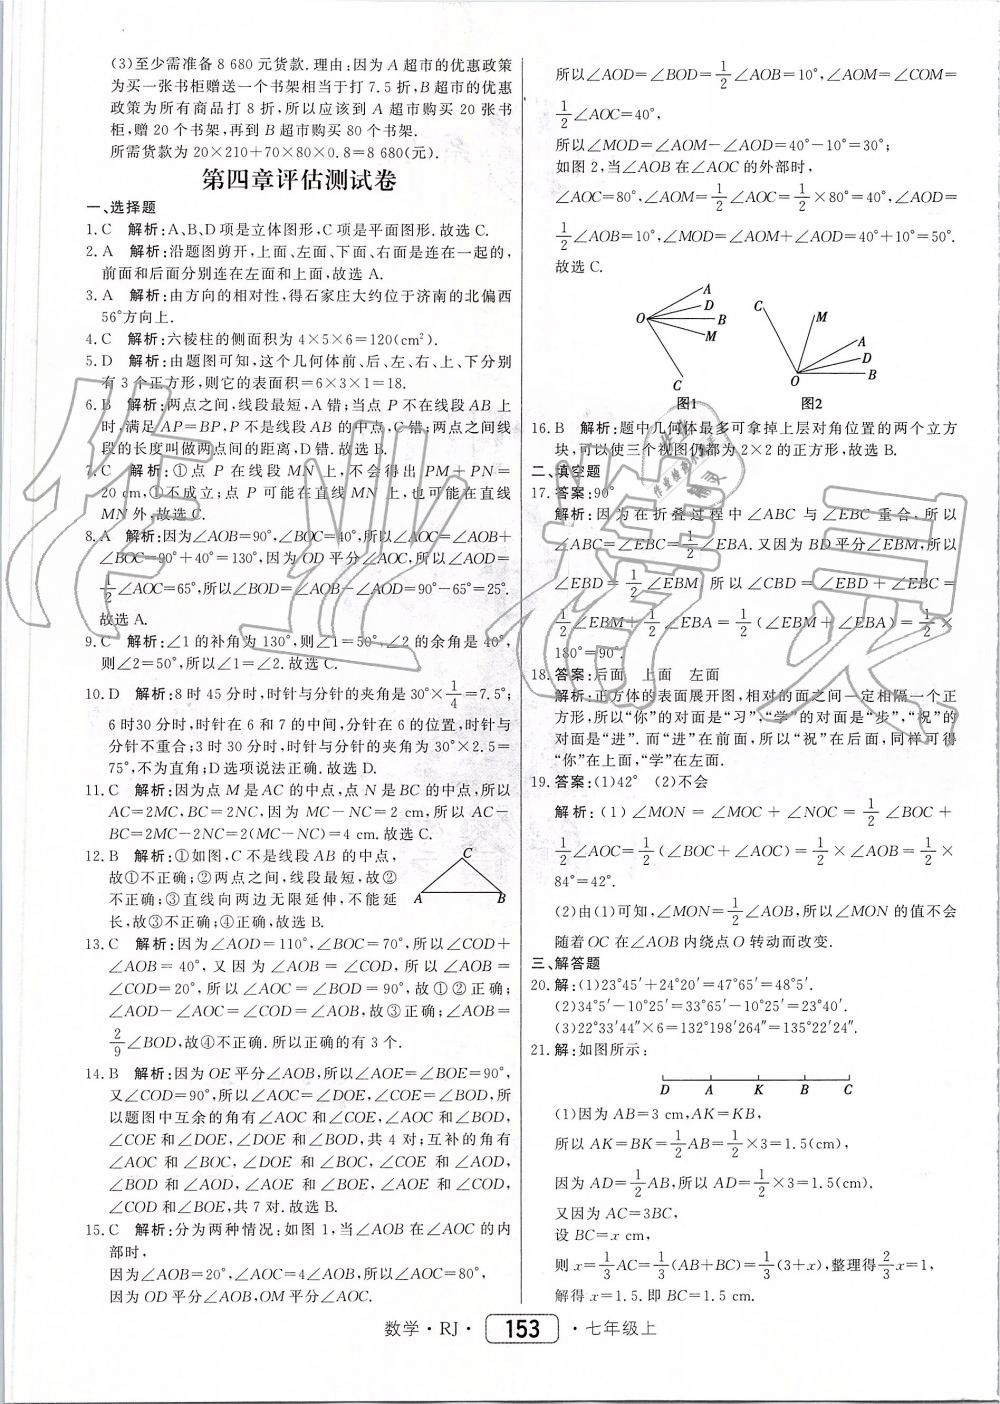 (3)至少需准备8 680元货款.理由:因为A超市的优惠政策
为买一张书柜赠送一个书架相当于打7.5折,B超市的优惠
政策为所有商品打8折,所以应该到A超市购买20张书
柜,赠20个书架,再到B超市购买80个书架.
所需货款为20×210+70×80×0.8=8 680(元).
第四章评估测试卷
一、选择题
1.C 解析:A、B、D项是立体图形,C项是平面图形.故选C.
2.A 解析:沿题图剪开,上面、左面、下面、右面是连在一起的,
前面和后面分别连在左面和上面,故选A.
3.A 解析:由方向的相对性,得石家庄大约位于济南的北偏西
56°方向上.
4.C 解析:六棱柱的侧面积为4×5×6=120(cm²).
5.D 解析:由题图可知,这个几何体前、后、左、右、上、下分别
有3个正方形,则它的表面积=6×3×1=18.
6.B 解析:两点之间,线段最短,A错;当点P不在线段AB上
时,满足AP=BP,P不是线段AB的中点,C错;两点之间线
段的长度叫做两点间的距离,D错.故选B.
7.C 解析:①点P在线段MN上,不会得出PM+PN=
20 cm,①不成立;点P可能在直线MN上,也可能在直线
MN外,故选C.
8.A 解析:因为∠AOB=90°,∠BOC=40°,所以∠AOC=∠AOB+
∠BOC=90°+40°=130°,因为OD平分∠AOC,所以∠AOD=
1/2∠AOC=65°,所以∠BOD=∠AOB-∠AOD=90°-65°=25°.
故选A.
9.C 解析:∠1的补角为130°,则∠1=50°,∠2的余角是40°,
则∠2=50°,所以∠1=∠2.故选C.
10.D 解析:8时45分时,时针与分针的夹角是30°×1/4=7.5°;
6时30分时,时针在6和7的中间,分针在6的位置,时针与
分针不重合;3时30分时,时针与分针的夹角为30°×2.5=
75°,不为直角;D选项说法正确.故选D.
11.C 解析:因为点M是AC的中点,点N是BC的中点,所以
AC=2MC,BC=2NC,因为MC-NC=2 cm,所以AC-
BC=2MC-2NC=2(MC-NC)=4 cm.故选C.
12.B 解析:①如图,C不是线段AB的中点,
故①不正确;②两点之间,线段最短,故②
不正确;③直线向两边无限延伸,不能延
长,故③不正确;④正确,故选B.
C
A B
13.C 解析:因为∠AOD=110°,∠BOC=70°,所以∠COD+
∠AOB=40°,又因为∠AOB=∠COD,所以∠AOB=
∠COD=20°,所以∠AOC=∠BOD=90°,故①②正确;
∠AOD-∠AOC=∠COD=∠AOB,故③正确;∠AOB=
2/9∠BOD,故④不正确.所以正确的有3个.
14.B 解析:因为OE平分∠AOB,所以∠AOE=∠BOE=90°,
又∠COD=90°,所以∠AOC=∠DOE,∠COE=∠BOD,所
以题图中互余的角有∠AOC和∠COE,∠AOC和∠BOD,
∠COE和∠DOE,∠DOE和∠BOD,共4对;互补的角有
∠AOC和∠BOC,∠DOE和∠BOC,∠COE和∠AOD,
∠BOD和∠AOD,∠AOE和∠BOE,∠AOE和∠COD,
∠COD和∠BOE,共7对.故选B.
15.C 解析:分为两种情况:如图1,当∠AOB在∠AOC的内
部时,
因为∠AOB=20°,∠AOC=4∠AOB,所以∠AOC=80°,
因为OD平分∠AOB,OM平分∠AOC.
所以∠AOD=∠BOD=1/2∠AOB=10°,∠AOM=∠COM=
1/2∠AOC=40°,
所以∠MOD=∠AOM-∠AOD=40°-10°=30°;
如图2,当∠AOB在∠AOC的外部时,
∠AOC=80°,∠AOM=1/2∠AOC=1/2×80°=40°,∠AOD=
1/2∠AOB=10°,∠MOD=∠AOM+∠AOD=40°+10°=50°.
故选C.
A
D
O B
M
C
图1
C
M
A
D
O B
图2
16.B 解析:题中几何体最多可拿掉上层对角位置的两个立方
块,可以使三个视图仍都为2×2的正方形,故选B.
二、填空题
17.答案:90°
解析:因为在折叠过程中∠ABC与∠EBC重合.所以
∠ABC=∠EBC=1/2∠EBA.又因为BD平分∠EBM,所以
∠EBD=1/2∠EBM,所以∠CBD=∠EBD+∠EBC=
1/2∠EBM+1/2∠EBA=1/2(∠EBM+∠EBA)=1/2×
180°=90°.
18.答案:后面 上面 左面
解析:正方体的表面展开图,相对的面之间一定相隔一个正
方形,所以“你”的对面是“习”,“学”的对面是“步”,“祝”的
对面是“进”.而“进”在前面,所以“祝”在后面,同样可得
“你”在上面,“学”在左面.
19.答案:(1)42° (2)不会
解析:(1)∠MON=∠MOC+∠NOC=1/2∠BOC+
1/2∠AOC=1/2(∠BOC+∠AOC)=1/2×∠AOB=1/2×
84°=42°.
(2)由(1)可知,∠MON=1/2∠AOB,所以∠MON的值不会
随着OC在∠AOB内绕点O转动而改变.
三、解答题
20.解:(1)23°45′+24°20′=47°65′=48°5′.
(2)34°5′-10°25′=33°65′-10°25′=23°40′.
(3)22°33′44″×6=132°198′264″=135°22′24″.
21.解:如图所示:
D A K B C
(1)因为AB=3 cm,AK=KB,
所以AK=BK=1/2AB=1/2×3=1.5(cm),
因为AD=1/2AB,所以AD=1/2×3=1.5(cm).
又因为AC=3BC,
设BC=x cm,
则x=1/3AC=1/3(AB+BC)=1/3(3+x),整理得2/3x=1,
解得x=1.5.即BC=1.5 cm.
数学·RJ· 153 ·七年级上
作业精灵